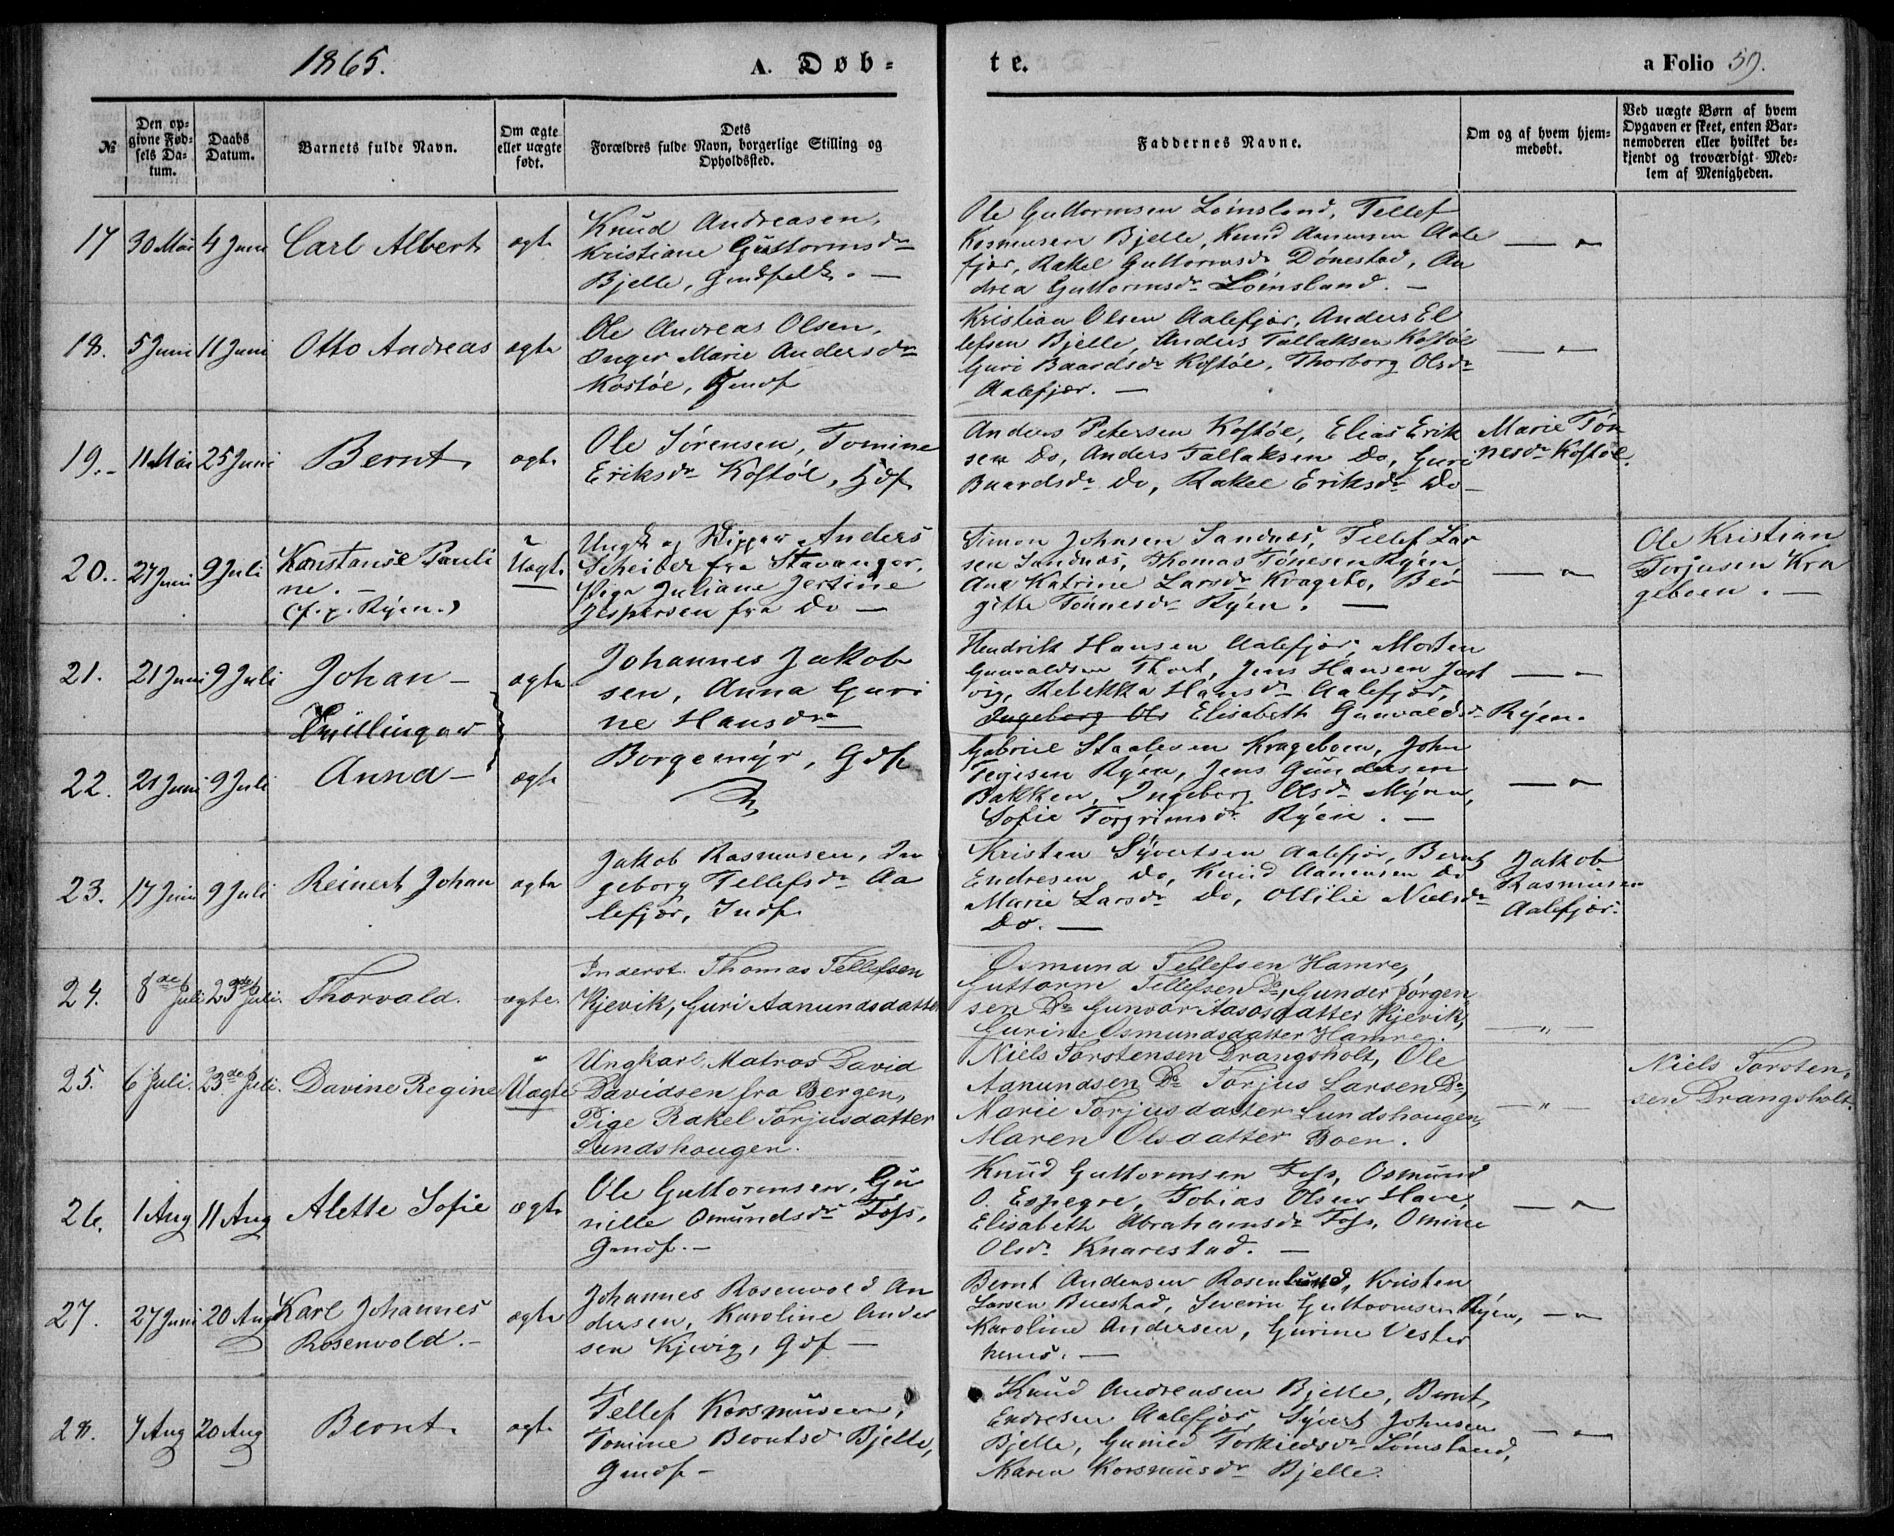 1865.
A. Døb-
te.
a Folio 59.
№
Den op-
givne Fød-
sels Da-
tum.
Daabs
Datum.
Barnets fulde Navn.
Om ægte
eller uægte
født.
Dets
Forældres fulde Navn, borgerlige Stilling og
Opholdssted.
Faddernes Navne.
Om og af hvem hjem-
medøbt.
Ved uægte Børn af hvem
Opgaven er skeet, enten Bar-
nemoderen eller hvilket be-
kjendt og troværdigt Med-
lem af Menigheden.
17
30 Mai
4 Juni
Carl Albert
ægte
Knud Andreasen,
Kristiane Guttormsdr
Bjelle, Gmdfolk. —
Ole Guttormsen Lømsland, Tellef
Korsmusen Bjelle, Knud Aanensen Aale
fjær, Rakel Guttormsdr Dønestad, An
drea Guttormsdr Lømsland. —
— " —
18.
5 Juni
11 Juni
Otto Andreas
ægte
Ole Andreas Olsen,
Inger Marie Andersdr
Kostøl, Gmdf
Kristian Olsen Aalefjær, Anders El
lefsen Bjelle, Anders Tallaksen Kostøl
Guri Baardsdr Kostøl, Thorborg Olsdr
Aalefjær. —
— " —
19.
11 Mai
25 Juni
Bernt
ægte
Ole Sørensen, Tomine
Eriksdr Kostøl, Gdf
Anders Petersen Kostøl, Elias Erik
sen Do, Anders Tallaksen Do, Guri
Baardsdr Do, Rakel Eriksdr Do —
Marie Tøn
nesdr Kostøl.
20.
27 Juni
9 Juli
Konstanse Pauli
ne. —
(f. p. Ryen.)
Uægte
Ungk og Skipper Anders
Scheiber fra Stavanger,
Pige Juliane Jensine
Jespersen fra Do —
Simon Johnsen Sandnæs, Tellef Lar
sen Sandnæs, Thomas Tønesen Ryen,
Ane Katrine Larsdr Kragebo, Ber
gitte Tønnesdr Ryen. —
— " —
Ole Kristian
Torjusen Kra
geboen. —
21.
21 Juni
9 Juli
Johan —
Tvillinger
ægte
Johannes Jakob
sen, Anna Guri
ne Hansdr
Borgemyr, Gdf
Hendrik Hansen Aalefjær, Morten
Gunvaldsen Thort, Jens Hansen Just
vig, Rebekka Hansdr Aalefjær,
Ingeborg Ols Elisabeth Gunvaldsdr Ryen.
— " —
22.
21 Juni
9 Juli
Anna —
ægte
Gabriel Staalesen Krageboen, John
Terjesen Ryen, Jens Gundersen
Bakken, Ingeborg Olsdr Myren,
Sofie Torgrimsdr Ryen. —
— " —
23.
17 Juni
9 Juli
Reinert Johan
ægte
Jakob Rasmusen, In
geborg Tellefsdr Aa
lefjær, Indf.
Kristen Syvertsen Aalefjær, Bernt
Endresen Do, Knud Aanensen Do
Marie Larsdr Do, Ottilie Nielsdr
Do. —
Jakob
Rasmusen
Aalefjær.
24.
8de Juli
23de Juli.
Thorvald.
ægte.
Inderst. Thomas Tellefsen
Kjevik, Guri Aanundsdatter
Osmund Tellefsen Hamre,
Guttorm Tellefsen Do, Gunder Jørgen-
sen Do Gunvor Aasosdatter Kjevik,
Gurine Osmundsdatter Hamre.
— " —
25.
6 Juli.
23de Juli.
Davine Regine
Uægte
Ungkarl Matros David
Davidsen fra Bergen,
Pige Rakel Torjusdatter
Lundshaugen.
Niels Torstensen Drangsholt, Ole
Aanundsen Do Torjus Larsen Do,
Marie Torjusdatter Lundshougen,
Maren Olsdatter Boen.
— " —
Niels Torsten-
sen Drangsholt.
26.
1 Aug
11 Aug
Alette Sofie
ægte
Ole Guttormsen, Gu
nille Omundsdr Foss,
Gmdf. —
Knud Guttormsen Foss, Osmund
O. Espegre, Tobias Olsen Have,
Elisabeth Abrahamsdr Foss, Omine
Olsdr Knarestad. —
— " —
27.
27 Juni
20 Aug
Karl Johannes
Rosenvold. —
ægte
Johannes Rosenvold An
dersen, Karoline Ander
sen Kjevig, Gdf —
Bernt Andersen Rosenlund, Kristen
Larsen Buestad, Severin Guttormsen Ryen,
Karoline Andersen, Gurine Vester
huus. —
— " —
28.
7 Aug
20 Aug
Bernt.
ægte
Tellef Korsmusen,
Tomine Berntsd Bjelle,
Gmdf —
Knud Andreasen Bjelle, Bernt
Endresen Aalefjær, Syvert Johnsen
Bjelle, Gunild Torkieldsdr Lømsland,
Karen Korsmusdr Bjelle.
— " —